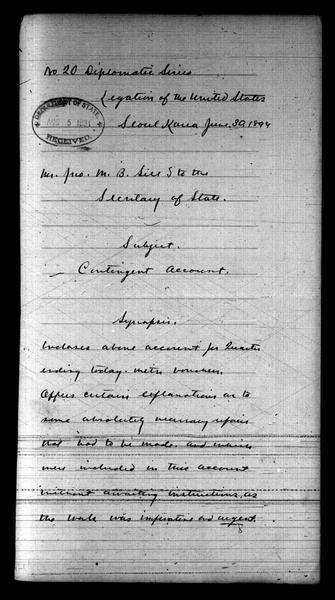 No 20 Diplomatic Series
Legation of the United States
Seoul Korea June 30, 1894
DEPARTMENT OF STATE
AUG 5 1894
RECEIVED
Mr. Jno. M. B. Sill to the
Secretary of State.
Subject.
Contingent Account.
Synopsis.
Incloses above account for Quarter
ending today with vouchers.
Offers certain explanations as to
some absolutely necessary repairs
that had to be made and which
were included in this account
without awaiting instructions, as
the work was imperative and urgent.